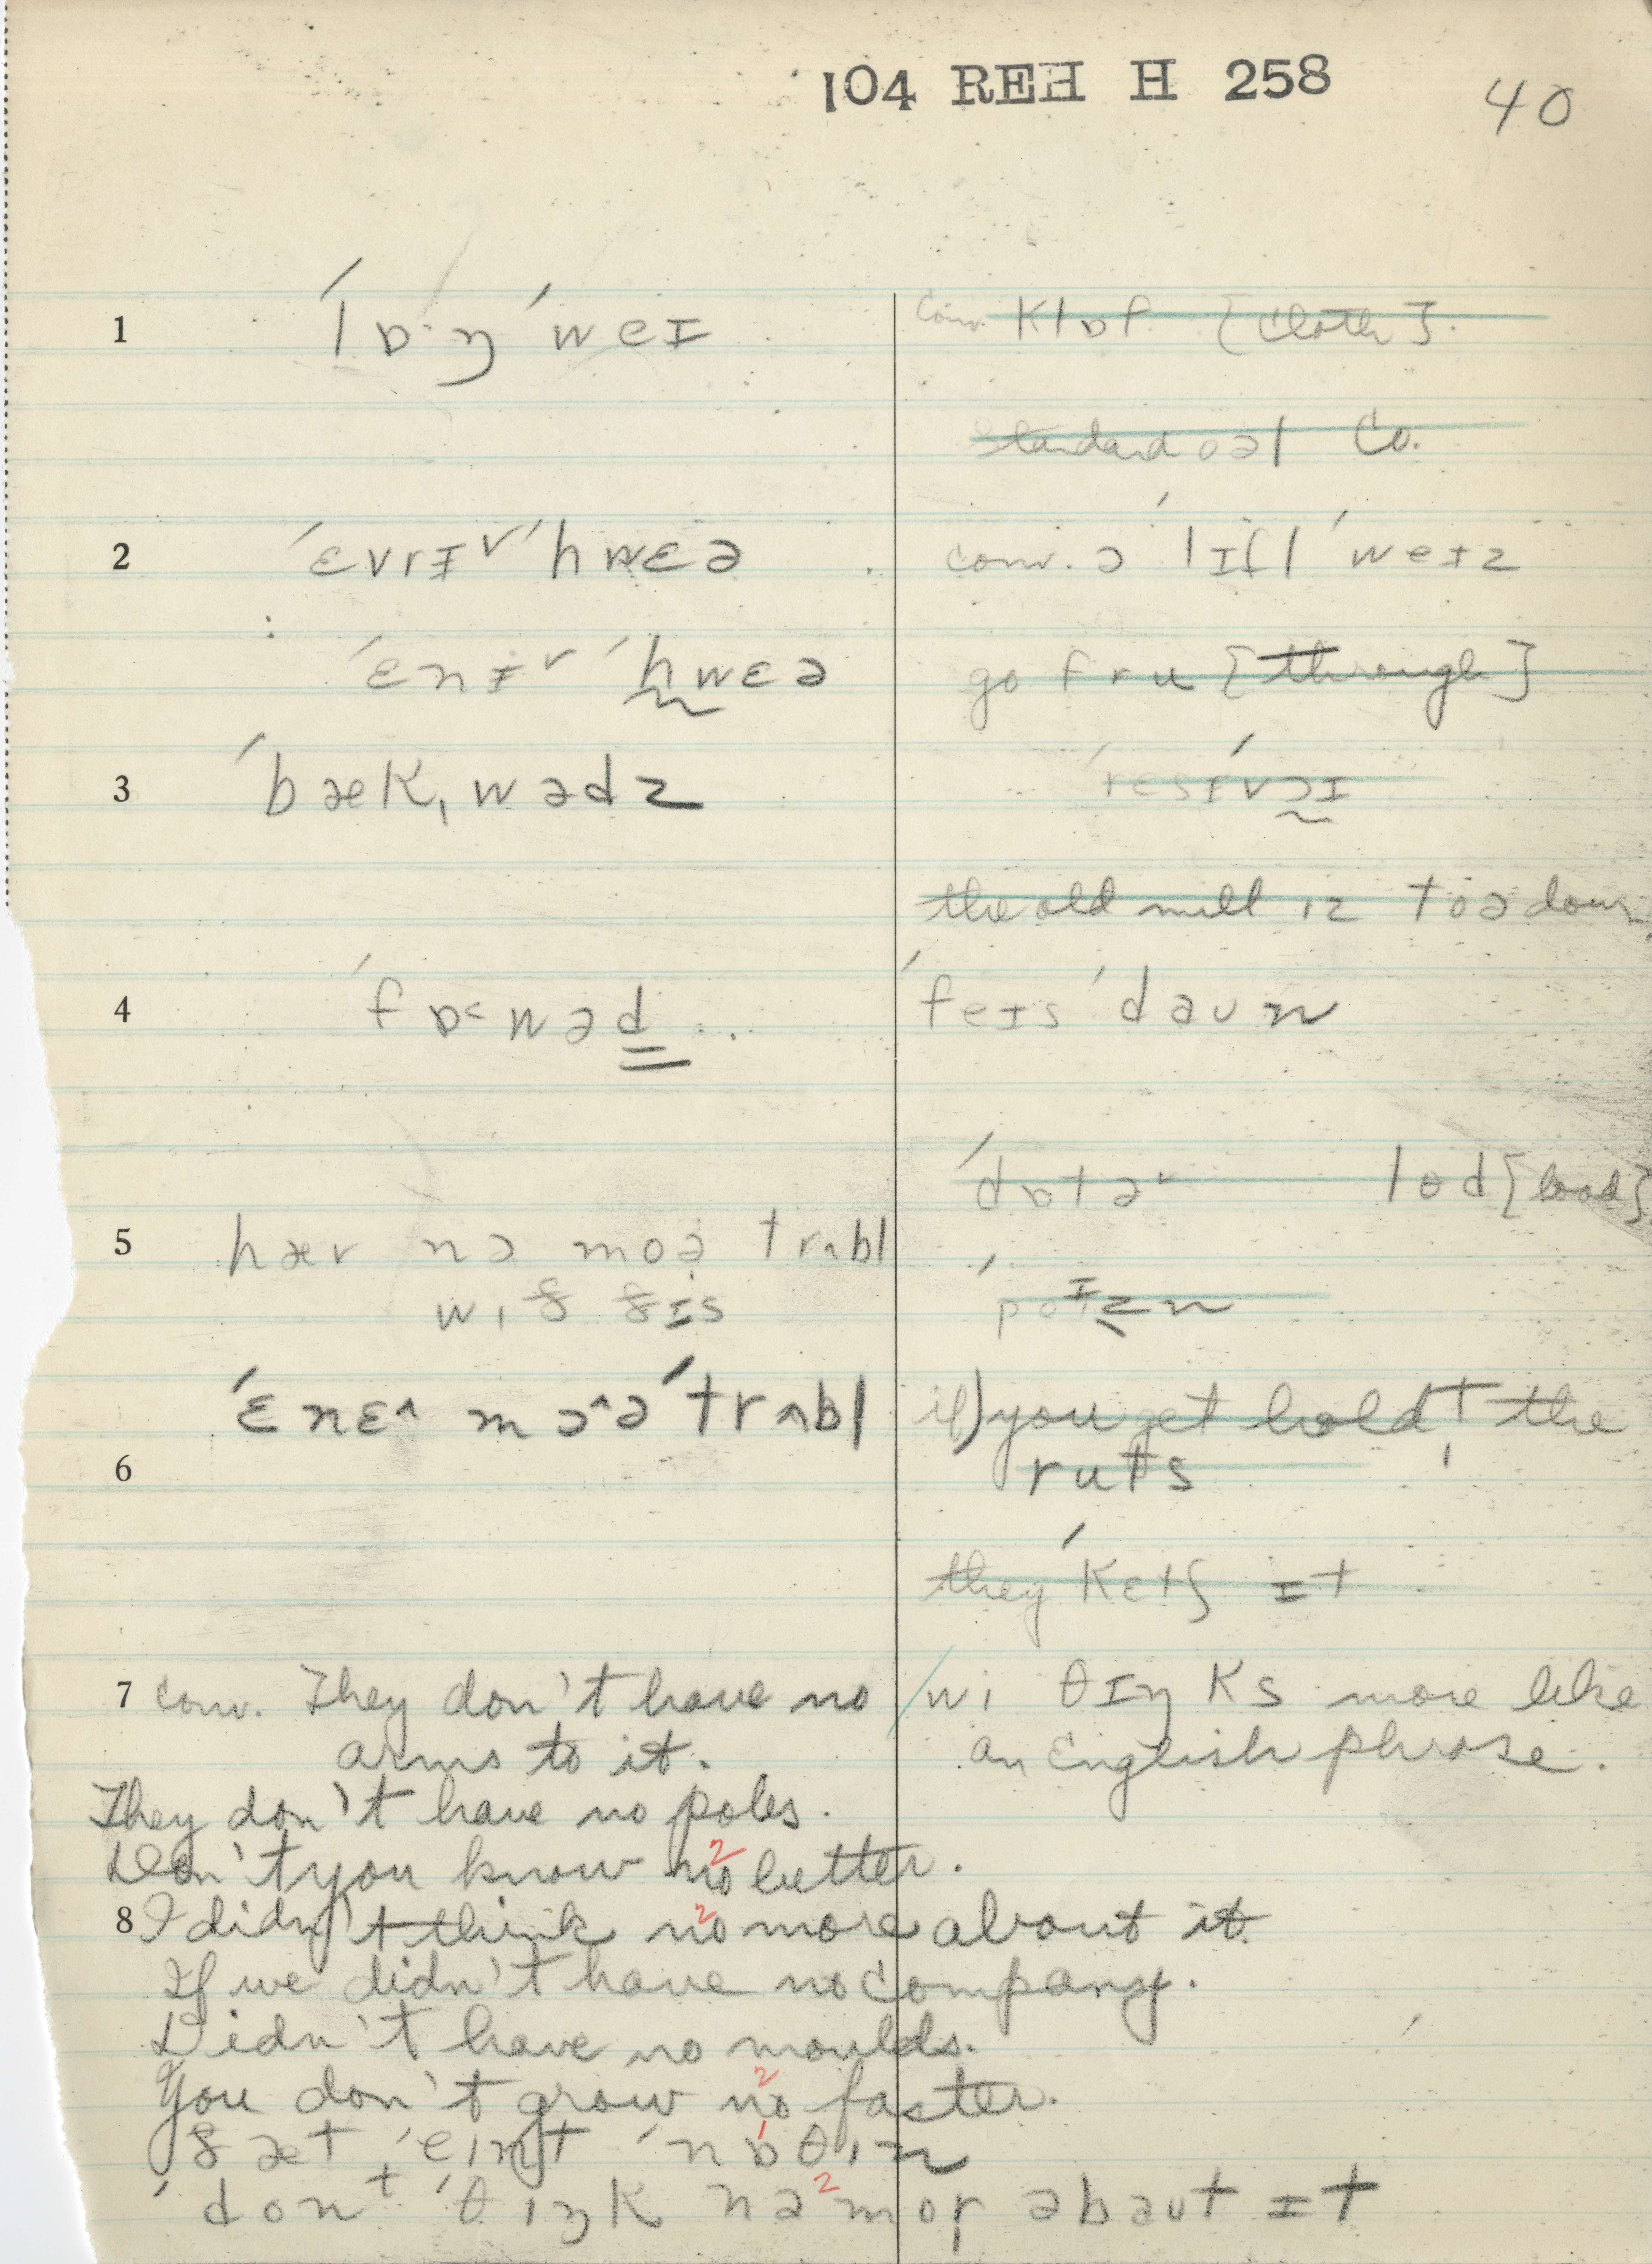 104 REH H 258
40
1 ˈlɒ·ŋ ˈweɪ
conv. klɒf [cloth].
standard oəl Co.
2 ˈɛvrɪ˅ ˈhwɛə
conv. ə ˈlɪtl ˈweɪz
ˈɛnɪ˅ ˈhwɛə
go fru [through]
3 ˈbækˌwədz
the old mill ɪz toə down
4 ˈfɒ˂wəd
ˈfeɪs ˈdaun
ˈdɒtə˅ lod [load]
5 hæv nə moə trʌbl
wɪð ðɪs
ˈpoɪzn
ˈɛnɛ^ mɔ^ə ˈtrʌbl
if) you get hold t the
6 ruts
they ˈketʃ ɪt
7 conv. They don't have no
arms to it.
wi θɪŋks more like
an English phrase.
They don't have no poles.
Don't you know no 2 better.
8 I didn't think no 2 more about it.
If we didn't have no company.
Didn't have no moulds.
You don't grow no 2 faster.
ðæt ˈeɪnt ˈnɒθɪn
ˈdont ˈθɪŋk nə 2 mor əbaut ɪt